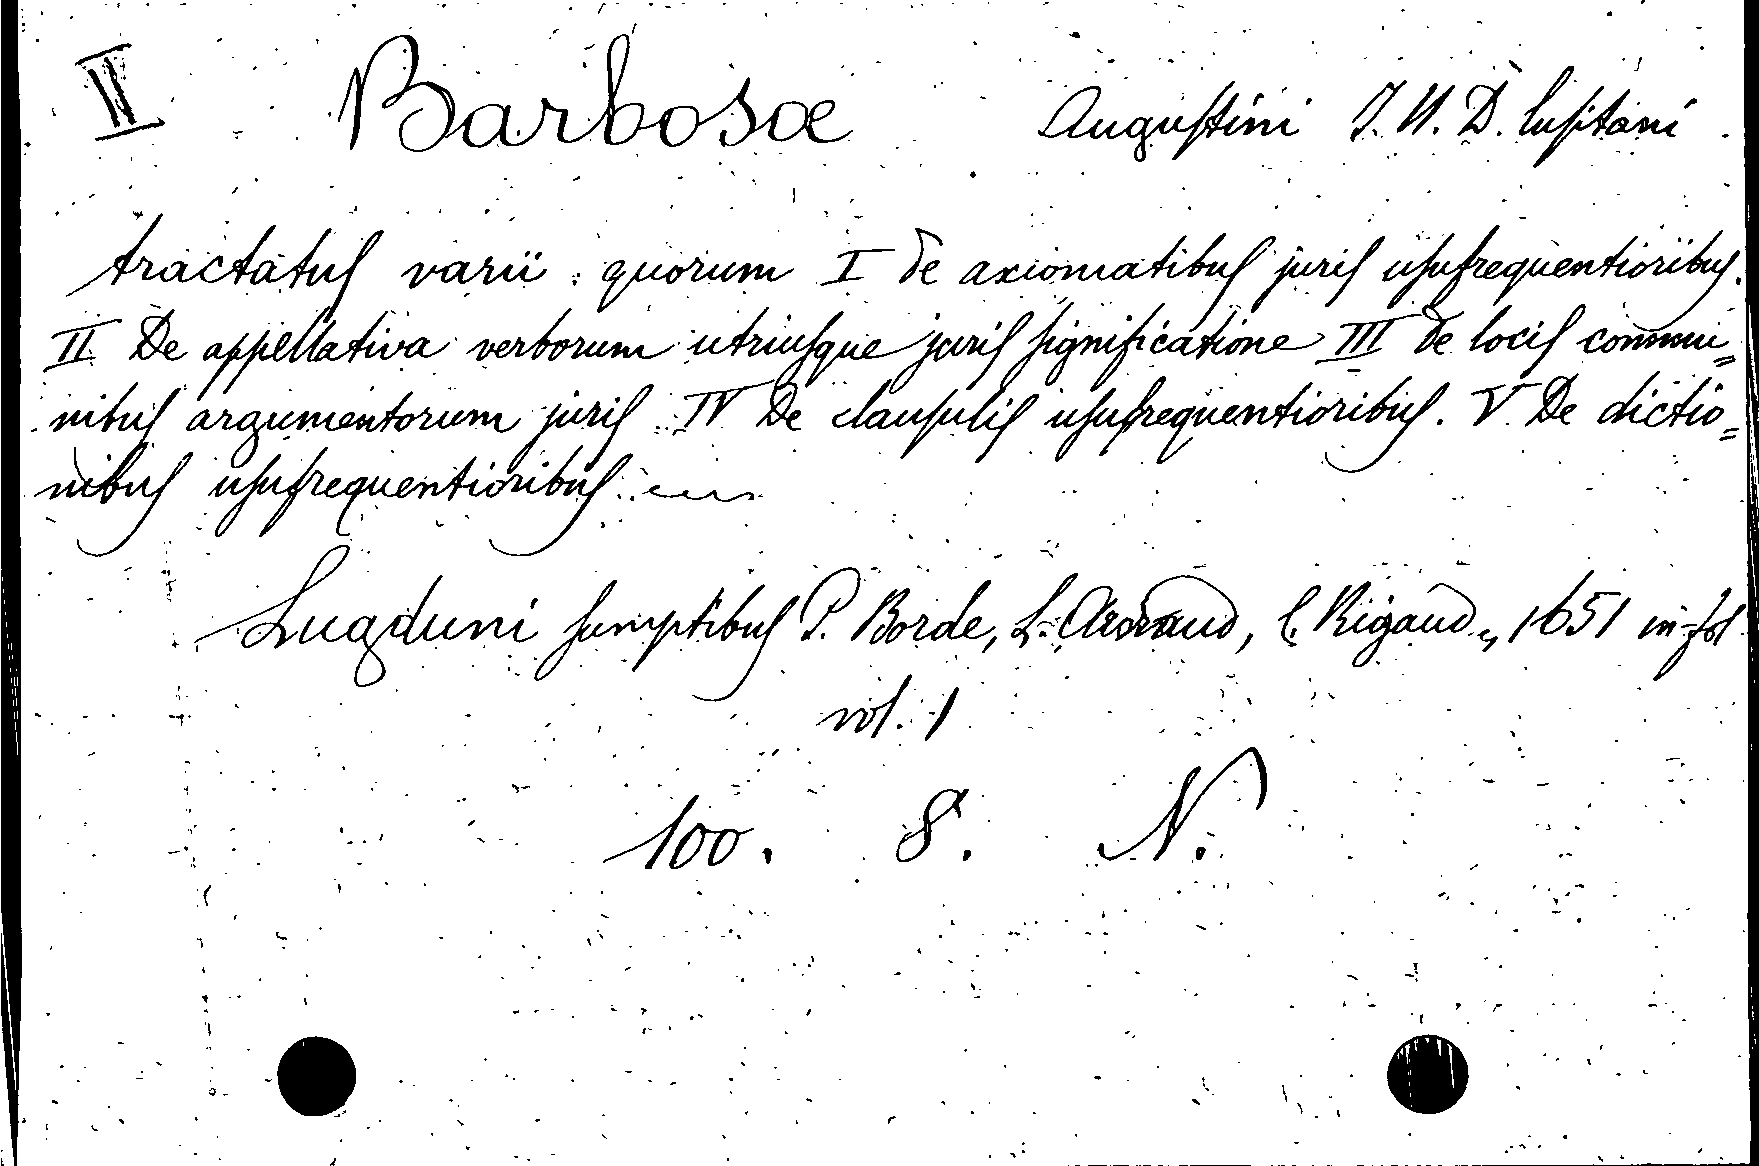 II Barbosæ Augustini J. U. D. lusitani
tractatus varii : quorum I de axiomatibus juris usufrequentioribus.
II De appellativa verborum utriusque juris significatione III de locis commu=
nibus argumentorum juris IV De clausulis usufrequentioribus. V. De dictio=
nibus usufrequentioribus
Lugduni sumptibus P. Borde, L. Arnaud, C. Rigaud, 1651 in-fol
vol. 1
100. 8. N.